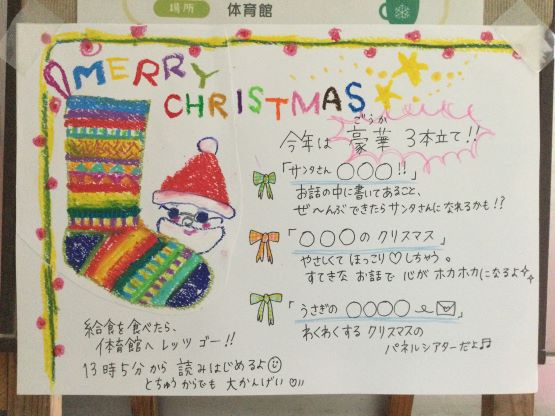 場所
体育館
MERRY
CHRISTMAS
ごうか
今年は 豪華 3本立て!!
「サンタさん ○○○!!」
お話の中に書いてあること、
ぜ〜んぶできたらサンタさんになれるかも!?
「○○○の クリスマス」
やさしくて ほっこり♡しちゃう。
すてきな お話で 心が ホカホカになるよ
「うさぎの ○○○○ e✉」
わくわくする クリスマスの
パネルシアターだよ♬
給食を食べたら、
体育館へ レッツ ゴー!!
13時5分から 読みはじめるよ☺
とちゅうからでも 大かんげい♡!!